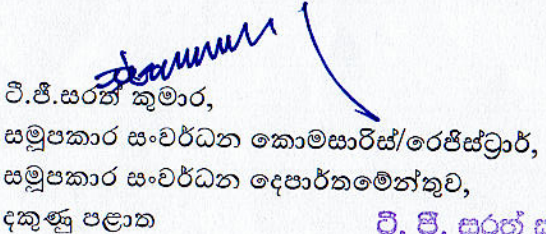 ටී.ජී.සරත් කුමාර,
සමූපකාර සංවර්ධන කොමසාරිස්/රෙජිස්ට්‍රාර්,
සමූපකාර සංවර්ධන දෙපාර්තමේන්තුව,
දකුණු පළාත
ටී. ජී. සරත්